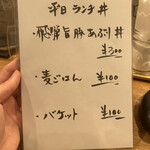 平日 ランチ 丼
・飛騨旨豚あぶり丼
¥1300
・麦ごはん ¥100
・バゲット ¥100